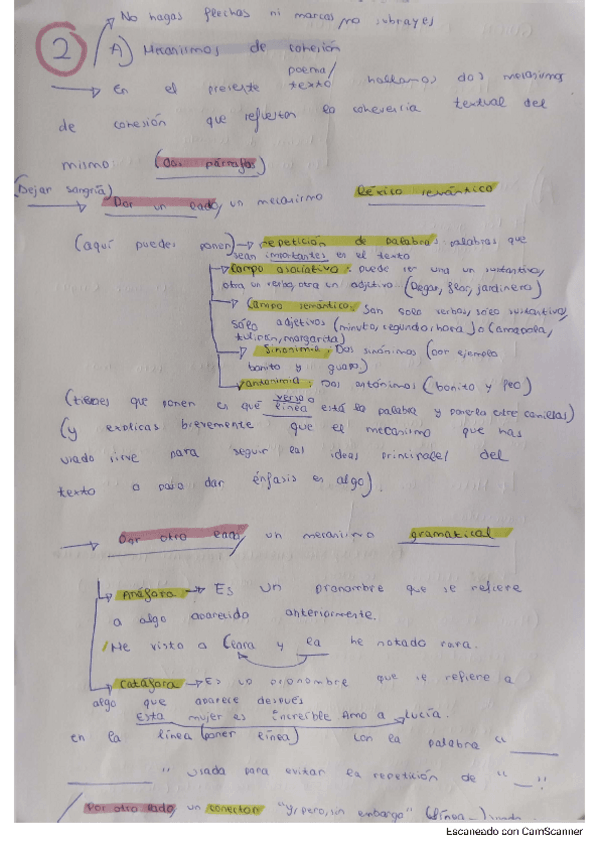 No hagas flechas ni marcas, no subrayes
2 A) Mecanismos de cohesión
En el presente poema/texto hallamos dos mecanismos
de cohesión que refuerzan la coherencia textual del
mismo (dos párrafos)
(Dejar sangría) Por un lado, un mecanismo léxico semántico
(aquí puedes poner) → repetición de palabras: palabras que
sean importantes en el texto
Campo asociativo: puede ser una un sustantivo,
otra un verbo, otra un adjetivo (Regar, flor, jardinero)
Campo semántico: San solo verbos, sólo sustantivos,
sólo adjetivos (minuto, segundo, hora) o (amapola,
tulipán, margarita)
Sinonimia: Dos sinónimos (por ejemplo
bonito y guapo)
antonimia: Dos antónimos (bonito y feo)
(tienes que poner en qué verso o línea está la palabra y ponerla entre comillas)
(y explicas brevemente que el mecanismo que has
usado sirve para seguir las ideas principales del
texto o para dar énfasis en algo)
→ Por otro lado, un mecanismo gramatical
Anáfora → Es un pronombre que se refiere
a algo aparecido anteriormente.
He visto a Clara y la he notado rara.
Catáfora → Es un pronombre que se refiere a
algo que aparece después
Esta mujer es increíble Amo a Lucía.
en la línea (poner línea) con la palabra "
" usada para evitar la repetición de " "
Por otro lado, un conector "y, pero, sin embargo" (línea _)
Escaneado con CamScanner